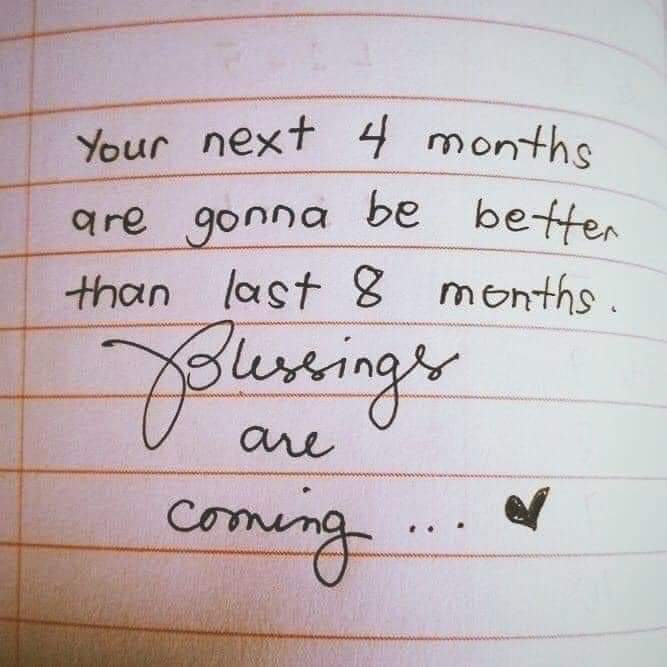 Your next 4 months
are gonna be better
than last 8 months.
Blessings
are
coming ...